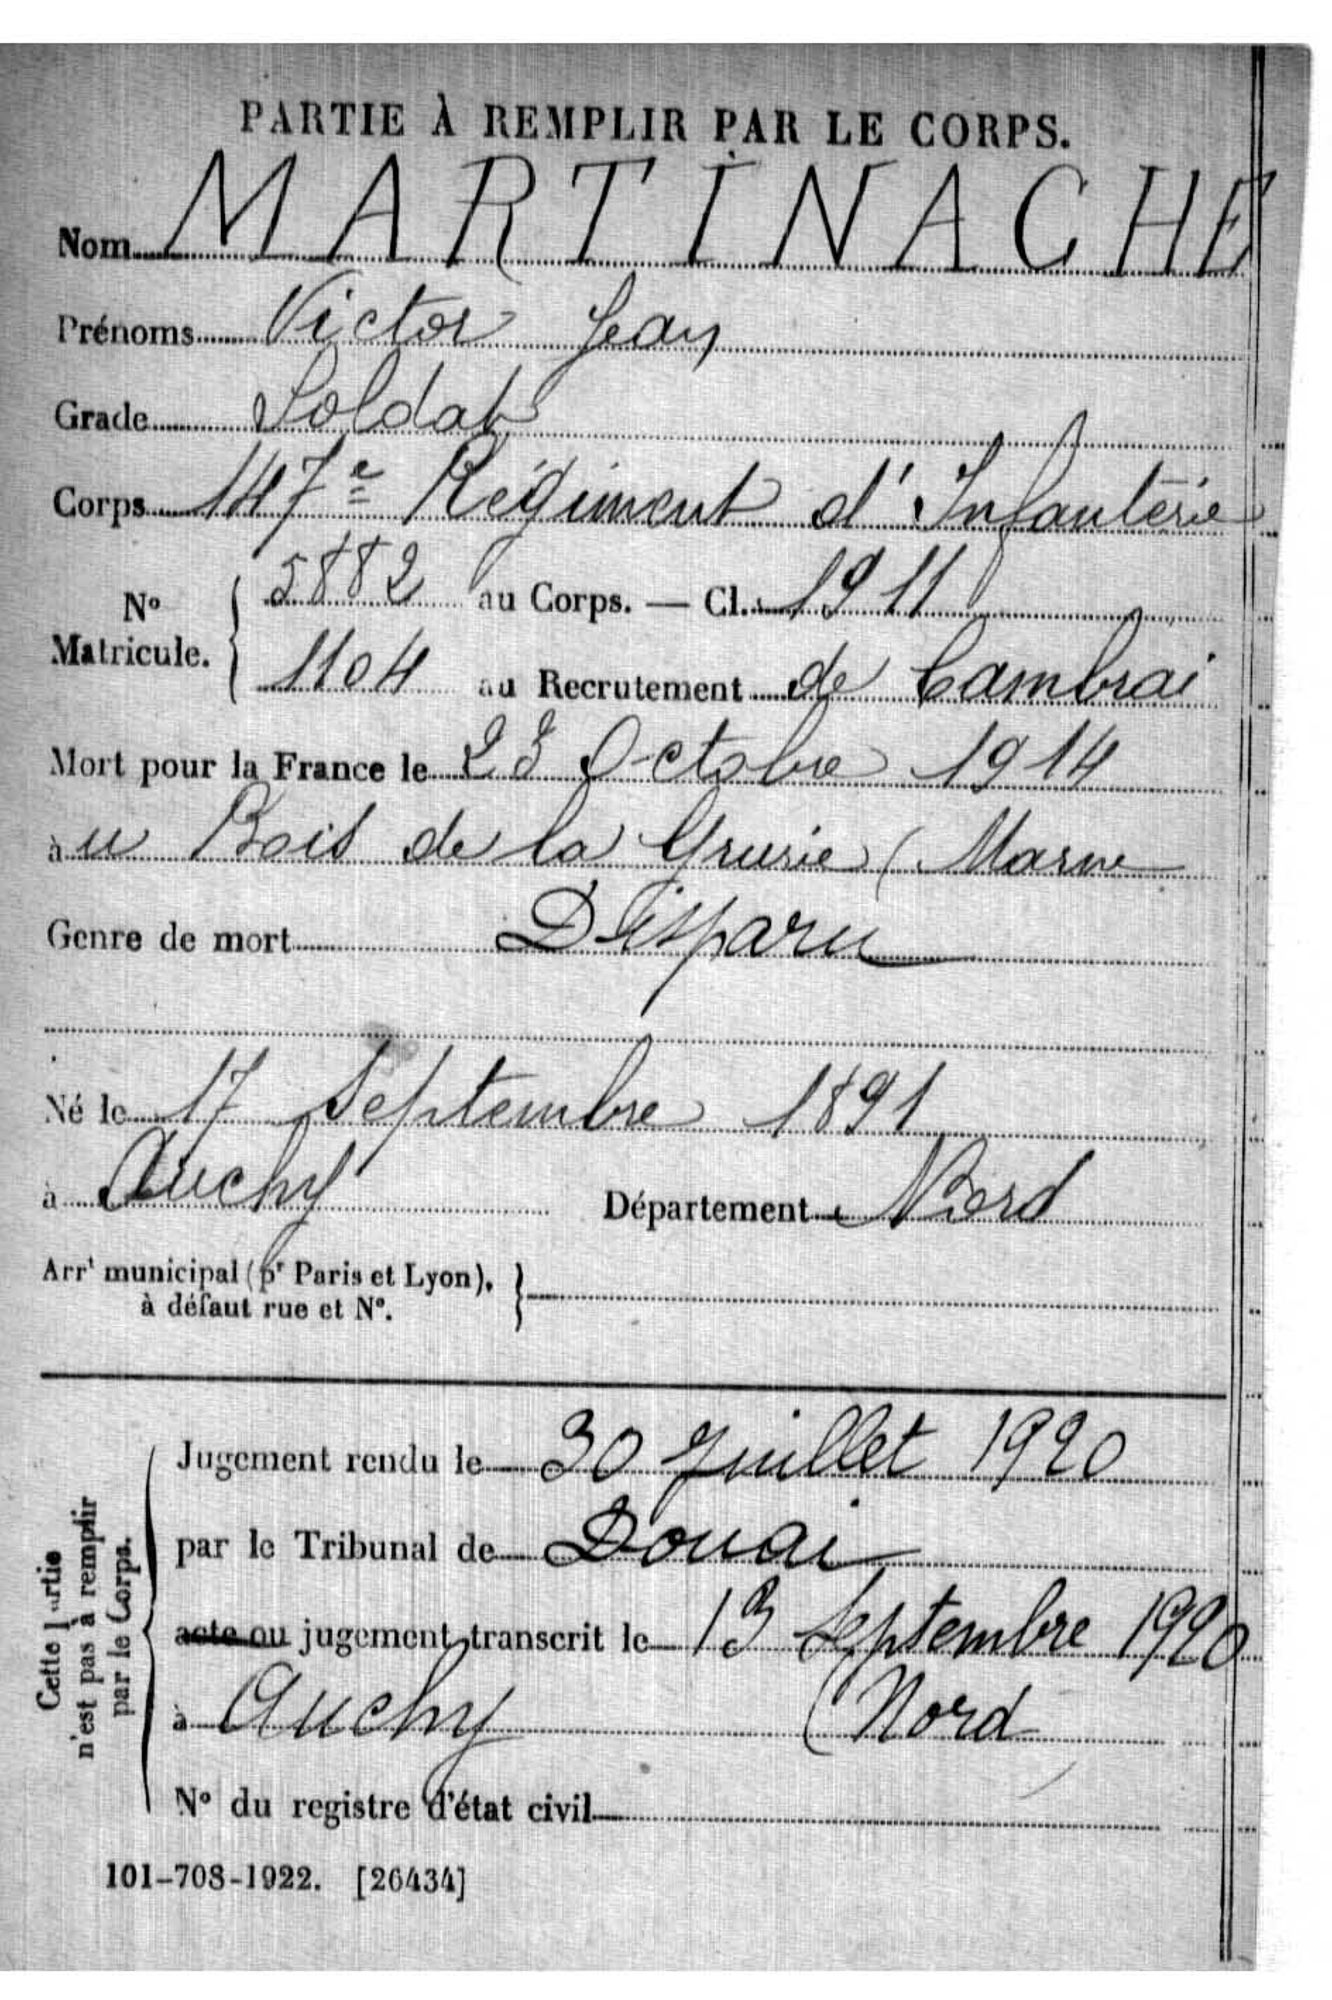 PARTIE À REMPLIR PAR LE CORPS.
Nom MARTINACHE
Prénoms Victor Jean
Grade Soldat
Corps 147e Régiment d'Infanterie
No Matricule. 5882 au Corps. — Cl. 1911
1104 au Recrutement de Cambrai
Mort pour la France le 23 Octobre 1914
à u Bois de la Grurie (Marne
Genre de mort Disparu
Né le 17 Septembre 1891
à Auchy Département Nord
Arrt municipal (pr Paris et Lyon),
à défaut rue et No.
Cette partie
n'est pas à remplir
par le Corps.
Jugement rendu le 30 Juillet 1920
par le Tribunal de Douai
acte ou jugement transcrit le 13 Septembre 1920
à Auchy (Nord
No du registre d'état civil
101-708-1922. [26434]